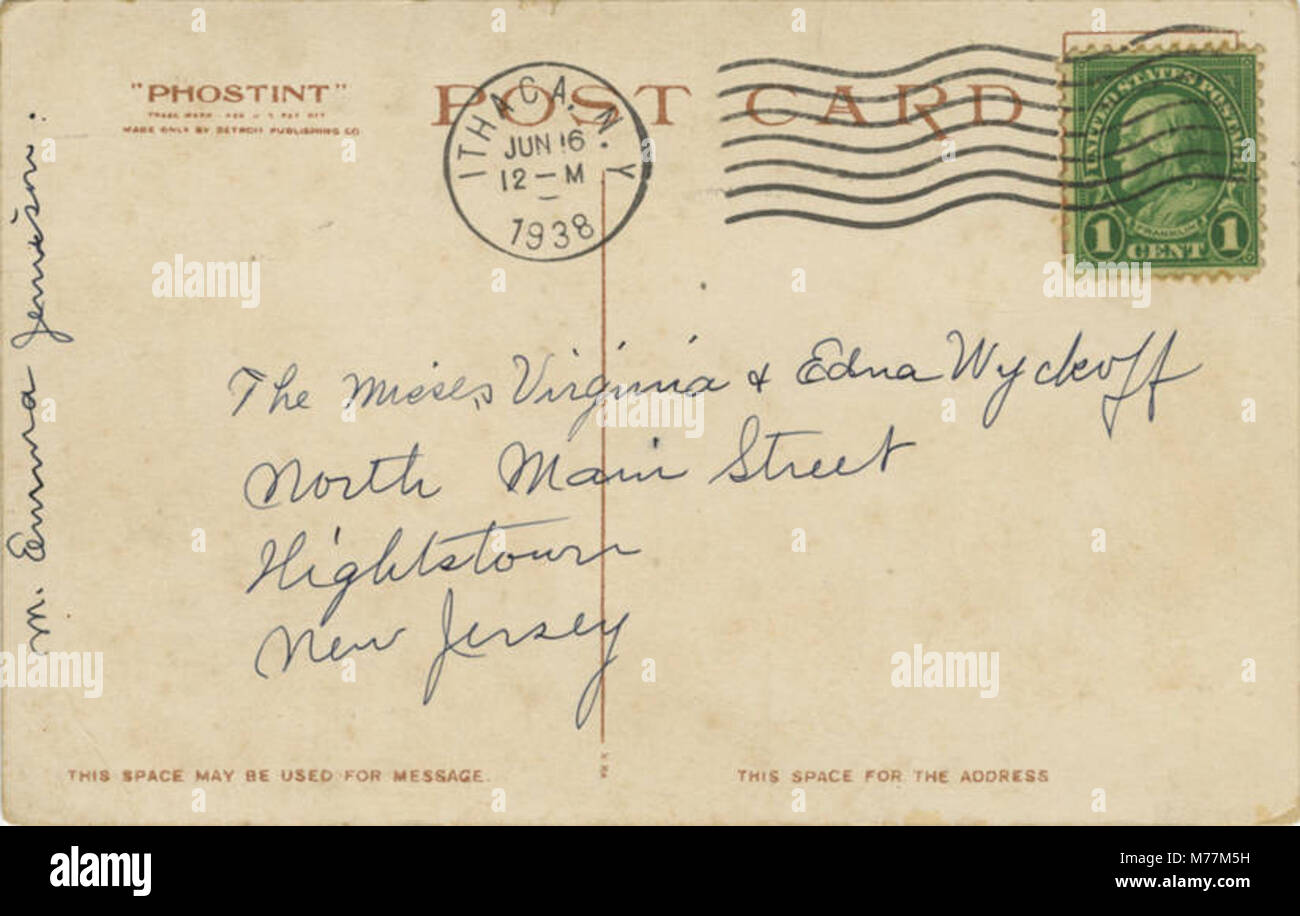 "PHOSTINT"
TRADE MARK REG U S PAT OFF
MADE ONLY BY DETROIT PUBLISHING CO
POST CARD
ITHACA. N.Y
JUN 16
12 - M
1938
UNITED STATES POSTAGE
FRANKLIN
1 CENT 1
M. Emma Jemison.
The Misses Virginia & Edna Wyckoff
North Main Street
Hightstown
New Jersey
THIS SPACE MAY BE USED FOR MESSAGE.
THIS SPACE FOR THE ADDRESS
a alamy
alamy
www.alamy.com
Image ID: M77M5H